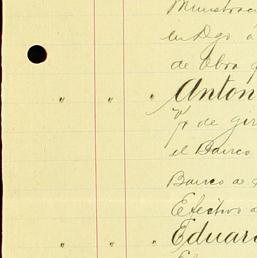 Ministrac
en Dgo a
de Obra q
" " " Anton
p de gir
el Banco
Banco a
Efectivo a
" " " Eduard